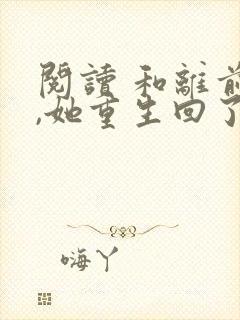 閱讀 和離前
,她重生回了
嗨丫